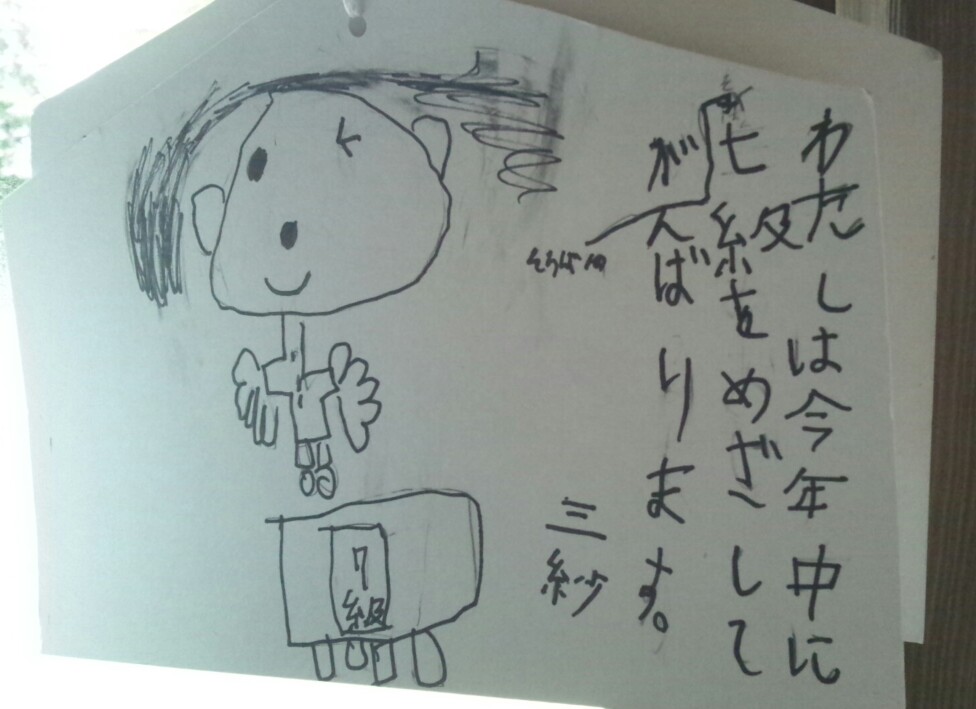 わたしは今年中に
七級をめざして
がんばります。
三紗
7級